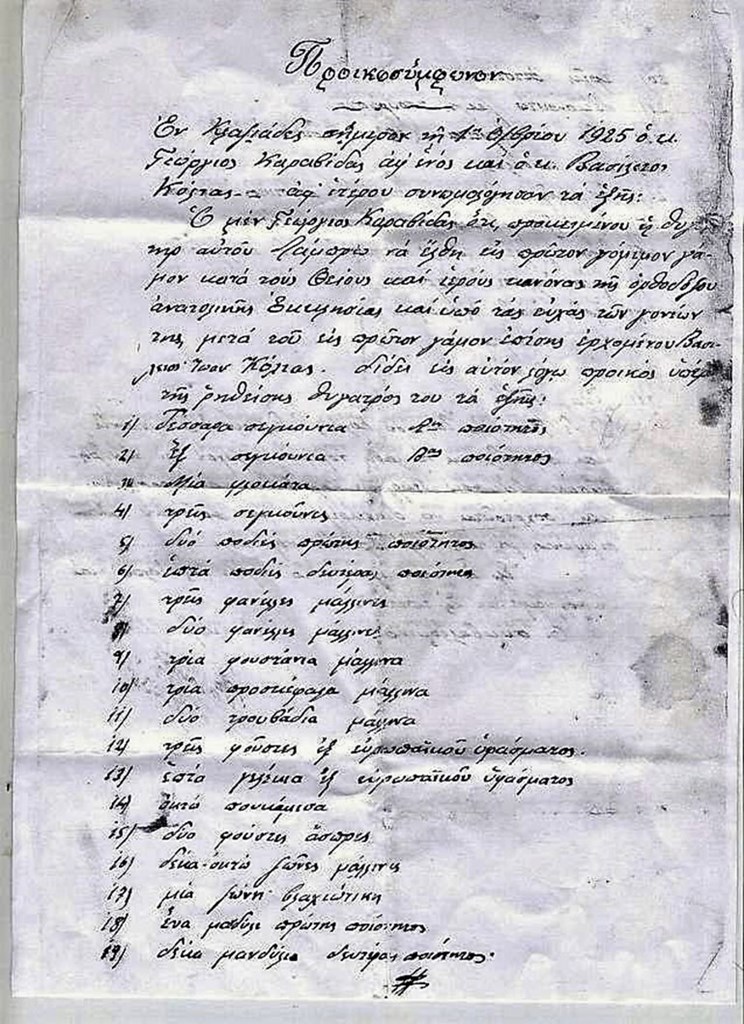 Προικοσύμφωνον
Ἐν Κλαψιάδες σήμερον τῇ 1ῃ 8/βρίου 1925 ὁ κ.
Γεώργιος Καραβίδας ἀφ' ἑνός καί ὁ κ. Βασίλειος
Κόλιας ἀφ' ἑτέρου συνωμολόγησαν τά ἑξῆς:
Ὁ μέν Γεώργιος Καραβίδας ὅτι, προκειμένου ἡ θυγά-
τηρ αὐτοῦ Λάμπρω νά ἔλθῃ εἰς πρῶτον νόμιμον γά-
μον κατά τούς Θείους καί ἱερούς κανόνας τῆς ὀρθοδόξου
ἀνατολικῆς Ἐκκλησίας καί ὑπό τάς εὐχάς τῶν γονέων
της μετά τοῦ εἰς πρῶτον γάμον ἐπίσης ἐρχομένου Βασ-
Κόλιας. δίδει εἰς αὐτόν λόγῳ προικός ὑπέρ
τῆς ῥηθείσης θυγατρός του τά ἑξῆς:
1) Τέσσαρα σεγκούνια Αης ποιότητος
2) ἕξ σεγκούνια Βας ποιότητος
3) Μία φλοκάτα
4) τρεῖς σεγκοῦνες
5) δυό ποδιές πρώτης ποιότητος
6) ἑπτά ποδιές δευτέρας ποιότητος
7) τρεῖς φανέλες μάλλινες
8) δύο φανέλες μάλλινες
9) τρία φουστάνια μάλλινα
10) τρία προσκέφαλα μάλλινα
11) δυό τρουβάδια μάλλινα
12) τρεῖς φοῦστες ἐξ εὐρωπαϊκοῦ ὑφάσματος.
13) ἑπτά γελέκια ἐξ εὐρωπαϊκοῦ ὑφάσματος
14) ὀκτώ πουκάμισα
15) δυο φούστες ἄσπρες
16) δέκα-ὀκτώ ζῶνες μάλλινες
17) μία ζώνη βλαχιώτικη
18) ἕνα μανδύλι πρώτης ποιότητος
19) δέκα μανδύλια δευτέρας ποιότητος.